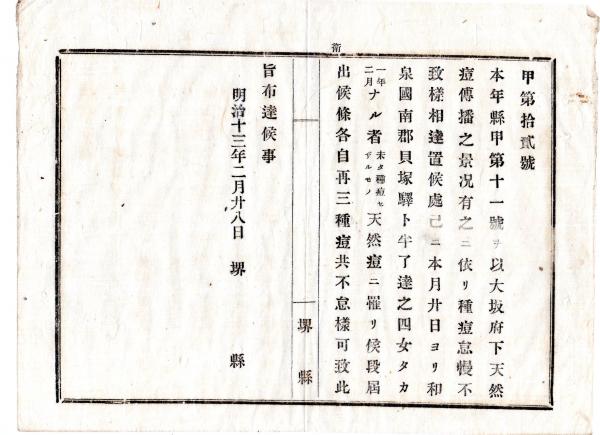 衛
甲第拾貳號
本年縣甲第十一號ヲ以大坂府下天然
痘傳播之景況有之ニ依リ種痘怠慢不
致樣相達置候處已ニ本月廿日ヨリ和
泉國南郡貝塚驛ト半了達之四女タカ
一年二月ナル者未タ種痘セザルモノ天然痘ニ罹リ候段屆
出候條各自再三種痘共不怠樣可致此
堺縣
旨布達候事
明治十三年二月廿八日 堺縣